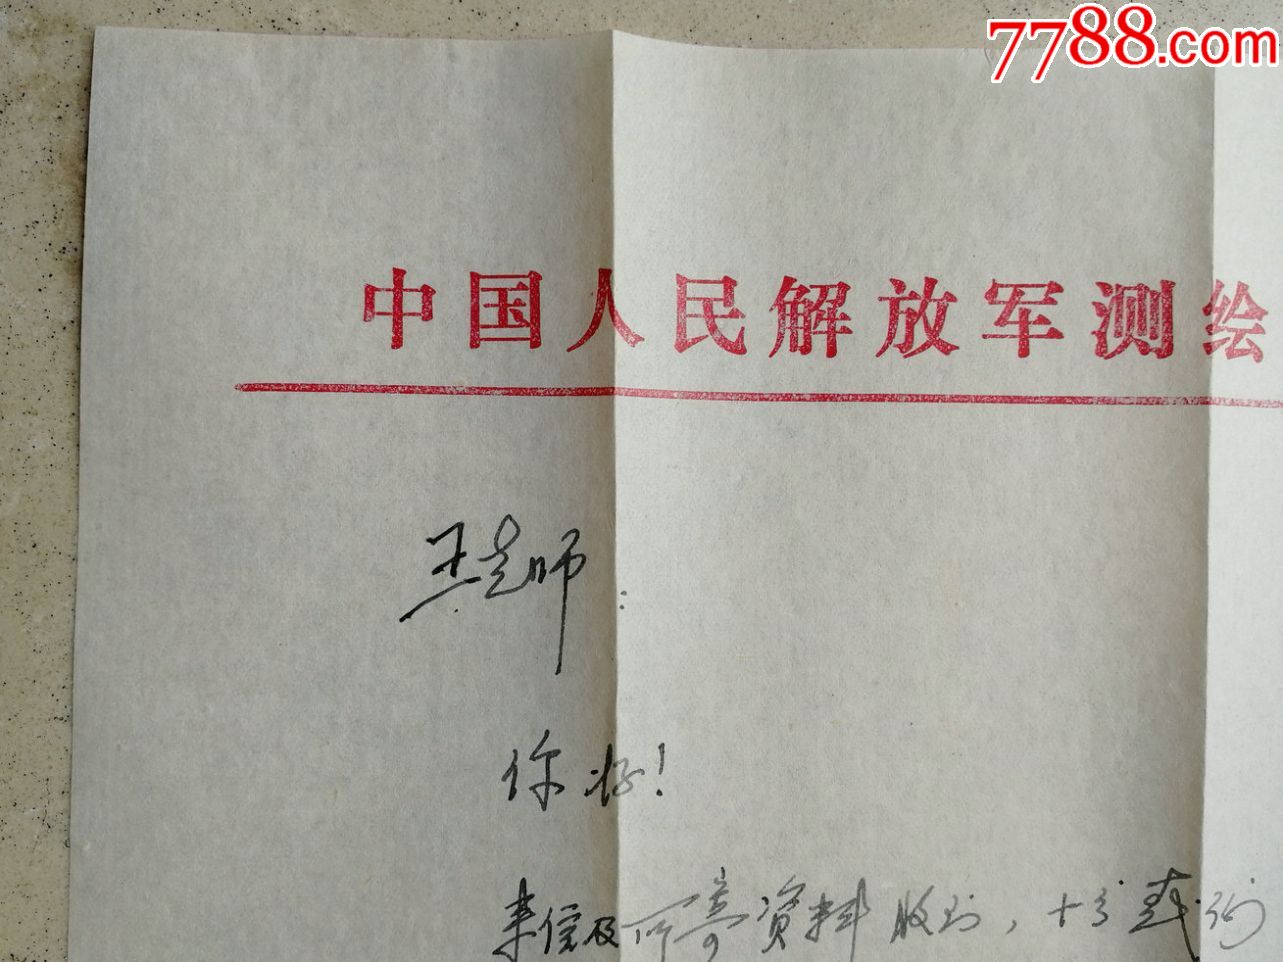 7788.com
中国人民解放军测绘
王老师：
你好！
来信及所寄资料收到，十分感谢